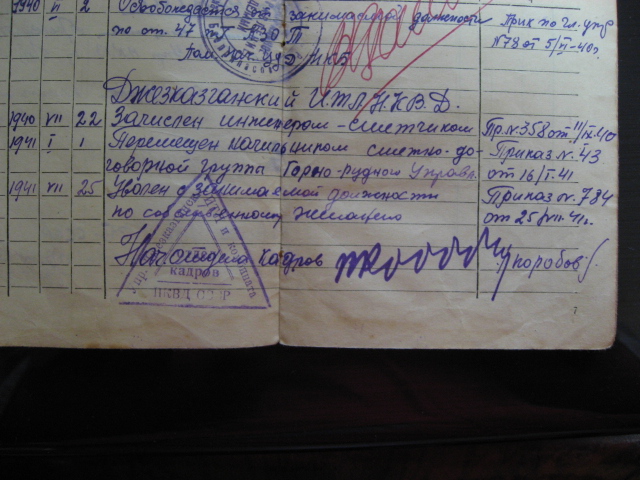 1940 VI 2 Освобождается от занимаемой должности Прик по гл. упр
по ст. 47 п. КЗОТ №78 от 5/VI-40г.
Джезказганский ИТЛ Н.К.В.Д.
1940 VII 22 Зачислен инженером-сметчиком Пр.№358 от
1941 I 1 Перемещен начальником сметно-до- Приказ №. 43
говорной группы Горно-рудного Управл. от 16/I-41
1941 VII 25 Уволен с занимаемой должности Приказ №. 784
по собственному желанию от 25/VII-41г.
Нач. отдела кадров
кадров
НКВД СССР
7